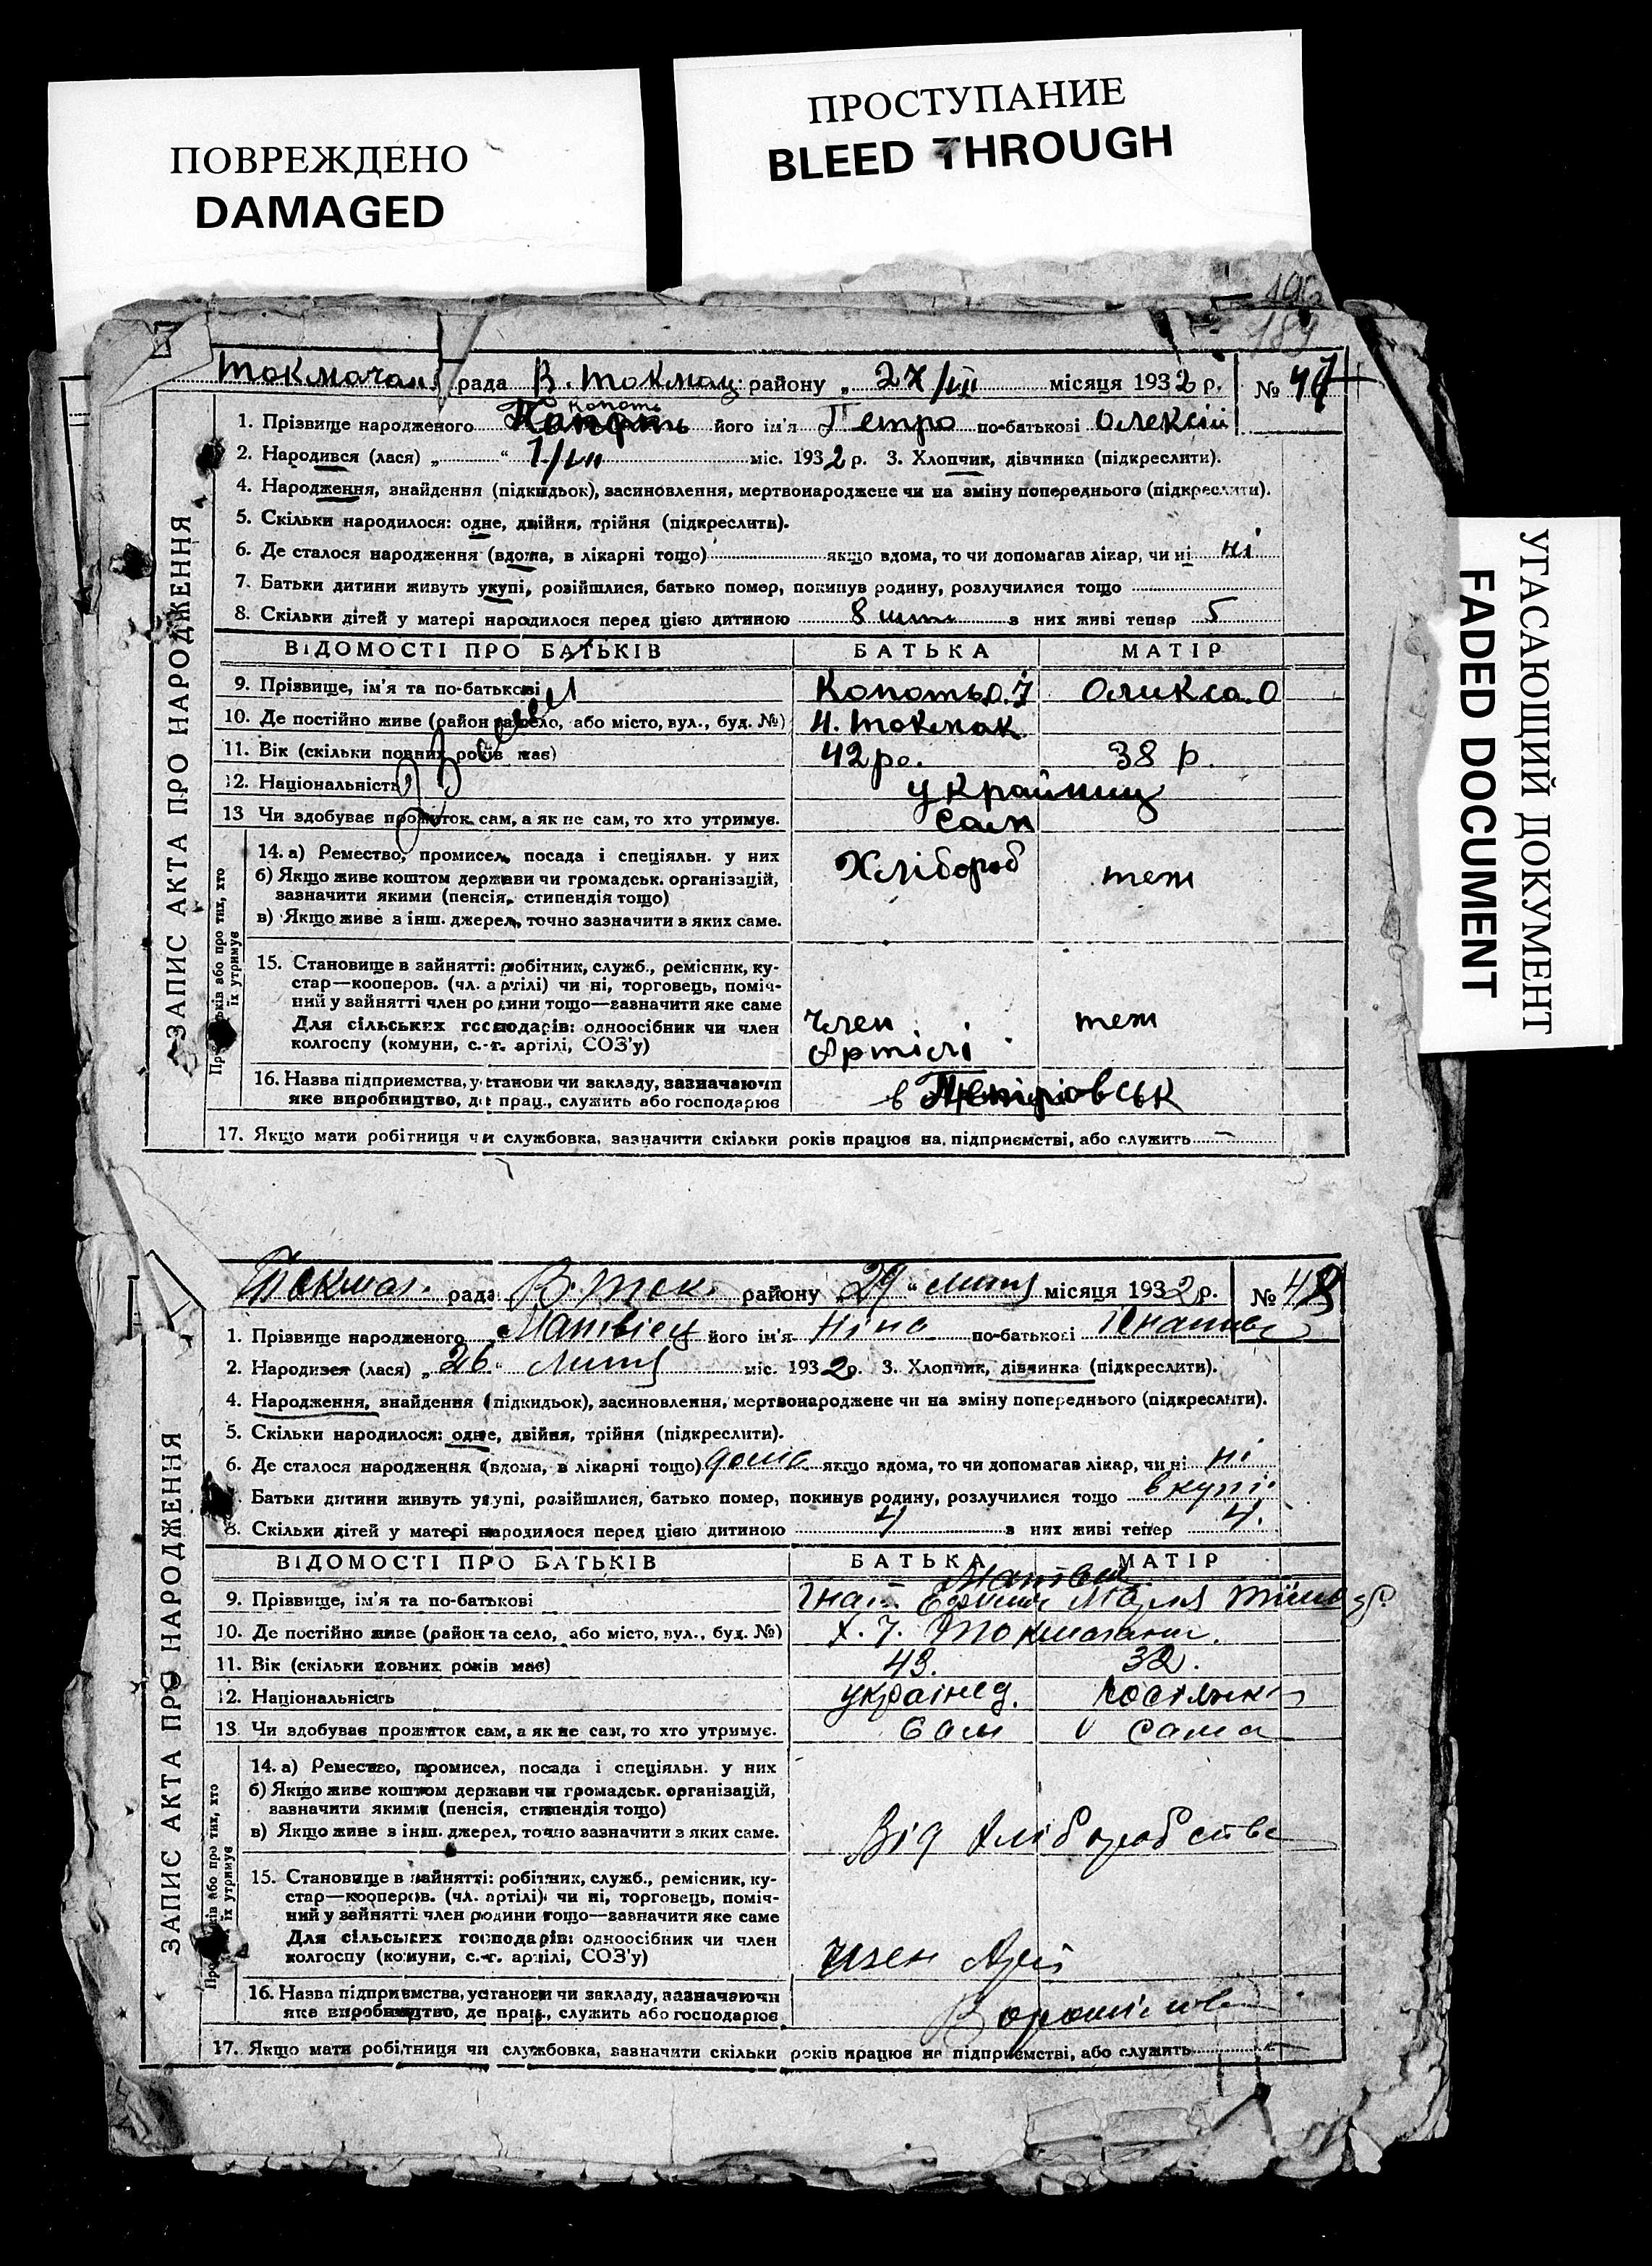 ПОВРЕЖДЕНО
DAMAGED
ПРОСТУПАНИЕ
BLEED THROUGH
УГАСАЮЩИЙ ДОКУМЕНТ
FADED DOCUMENT
189
рада В. Токмац. району „ 27/VII місяця 1932 р. № 47
ЗАПИС АКТА ПРО НАРОДЖЕННЯ
1. Прізвище народженого Копоть його ім'я Петро по-батькові Олексій
2. Народився (лася) „ “ 1/VII міс. 1932 р. 3. Хлопчик, дівчинка (підкреслити).
4. Народження, знайдення (підкидьок), засиновлення, мертвонароджене чи на зміну попереднього (підкреслити).
5. Скільки народилося: одне, двійня, трійня (підкреслити).
6. Де сталося народження (вдома, в лікарні тощо) якщо вдома, то чи допомагав лікар, чи ні ні
7. Батьки дитини живуть укупі, розійшлися, батько помер, покинув родину, розлучилися тощо
8. Скільки дітей у матері народилося перед цією дитиною 8 з них живі тепер 5
ВІДОМОСТІ ПРО БАТЬКІВ БАТЬКА МАТІР
9. Прізвище, ім'я та по-батькові Копоть О. І Оликса. О
10. Де постійно живе (район та село, або місто, вул., буд. №) Н. Токмак
11. Вік (скільки повних років має) 42 ро. 38 р.
12. Національність україниц
13 Чи здобуває прожиток сам, а як не сам, то хто утримує. Сам
14. а) Ремество, промисел, посада і спеціяльн. у них Хлібороб теж
б) Якщо живе коштом держави чи громадськ. організацій,
зазначити якими (пенсія, стипендія тощо)
в) Якщо живе з інш. джерел, точно зазначити з яких саме.
15. Становище в зайнятті: робітник, служб., ремісник, ку-
стар—кооперов. (чл. артілі) чи ні, торговець, поміч-
ний у зайнятті член родини тощо—зазначити яке саме
Для сільських господарів: одноосібник чи член Член теж
колгоспу (комуни, с.-г. артілі, СОЗ'у) Артілі
16. Назва підприємства, установи чи закладу, зазначаючи
яке виробництво, де прац., служить або господарює в
17. Якщо мати робітниця чи службовка, зазначити скільки років працює на підприємстві, або служить —
Токмач. рада В. Ток. району „29“ липня місяця 1932 р. № 48
ЗАПИС АКТА ПРО НАРОДЖЕННЯ
1. Прізвище народженого Матвієц його ім'я Ніна по-батькові
2. Народився (лася) „26“ липня міс. 1932 р. 3. Хлопчик, дівчинка (підкреслити).
4. Народження, знайдення (підкидьок), засиновлення, мертвонароджене чи на зміну попереднього (підкреслити).
5. Скільки народилося: одне, двійня, трійня (підкреслити).
6. Де сталося народження (вдома, в лікарні тощо) дома якщо вдома, то чи допомагав лікар, чи ні ні
Батьки дитини живуть укупі, розійшлися, батько помер, покинув родину, розлучилися тощо вкупі
8. Скільки дітей у матері народилося перед цією дитиною 4 з них живі тепер 4.
ВІДОМОСТІ ПРО БАТЬКІВ БАТЬКА МАТІР
9. Прізвище, ім'я та по-батькові Гнат Марія
10. Де постійно живе (район та село, або місто, вул., буд. №)
11. Вік (скільки повних років має) 43. 32.
12. Національність українец. росіянка
13. Чи здобуває прожиток сам, а як не сам, то хто утримує. Сам сама
14. а) Ремество, промисел, посада і спеціяльн. у них
б) Якщо живе коштом держави чи громадськ. організацій,
зазначити якими (пенсія, стипендія тощо)
в) Якщо живе з інш. джерел, точно зазначити з яких саме. Від хліборобства
15. Становище в зайнятті: робітник, служб., ремісник, ку-
стар—кооперов. (чл. артілі) чи ні, торговець, поміч-
ний у зайнятті член родини тощо—зазначити яке саме
Для сільських господарів: одноосібник чи член
колгоспу (комуни, с.-г. артілі, СОЗ'у) член Арті
16. Назва підприємства, установи чи закладу, зазначаючи
яке виробництво, де прац., служить або господарює
17. Якщо мати робітниця чи службовка, зазначити скільки років працює на підприємстві, або служить —